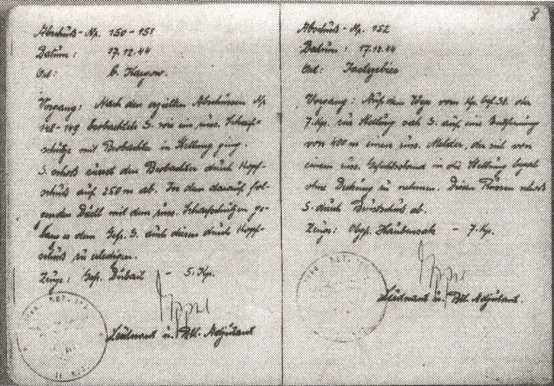 Abschuß-Np. 150-151
Datum: 17.12.44
Ort: b. Kaysow.
Vorgang: Nach den erzielten Abschüssen Np.
148-149 beobachtete S. wie ein russ. Scharf-
schütze mit Beobachter in Stellung ging.
S. schoß zuerst den Beobachter durch Kopf-
schuß auf 250 m ab. In dem darauf fol-
genden Duell mit dem russ. Scharfschützen ge-
lang es dem Gef. S. auch diesen durch Kopf-
schuß zu erledigen.
Zeuge: Gef. - 5. Kp.
Leutnant u. Btl. Adjutant
8
Abschuß-Np. 152
Datum: 17.12.44
Ort:
Vorgang: Auf dem Weg vom Kp. Gef. St. der
7. Kp. zur Stellung sah S. auf eine Entfernung
von 400 m einen russ. Melder, der sich von
einem russ. Gefechtsstand in die Stellung begab
ohne Deckung zu nehmen. Diesen Russen schoß
S. durch Brustschuß ab.
Zeuge: Ogfr. - 7. Kp.
Leutnant u. Btl. Adjutant.